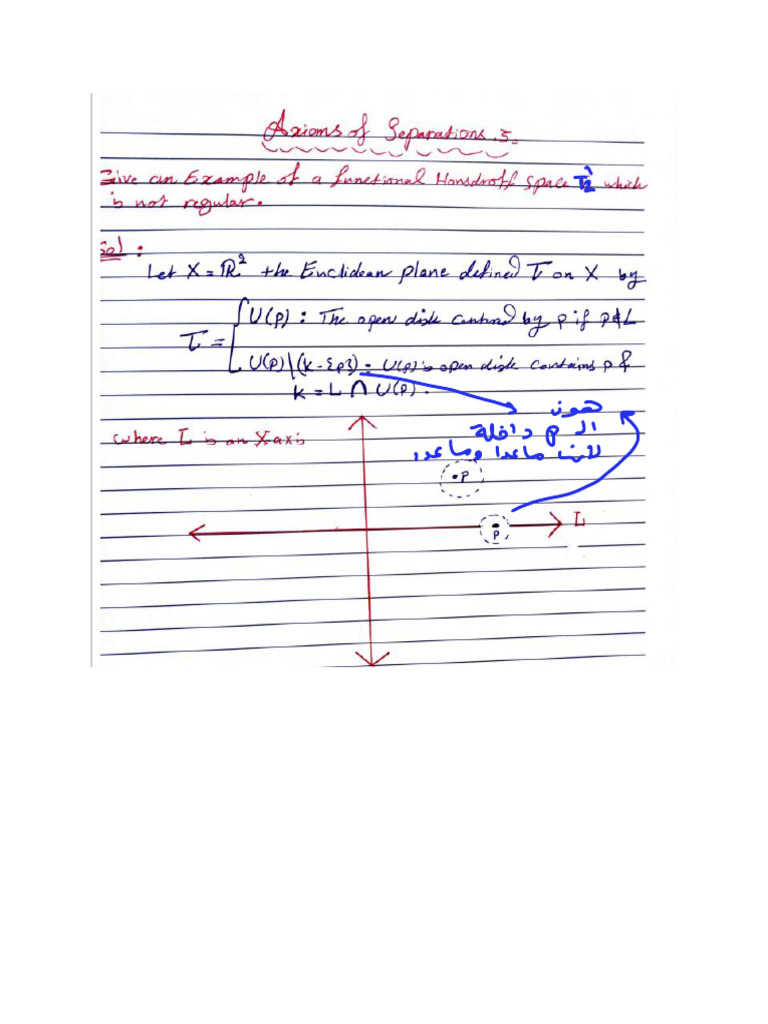 Axioms of Separations.5
Give an Example of a functional Honsdroff space T₂̀ which
is not regular.
Sol :
Let X = ℝ² the Euclidean plane defined τ on X by
U(p) : The open disk centred by p if p∉L
τ =
U(p)\(k-{p}) : U(p) is open disk contains p &
k = L ∩ U(p).
where L is an X-axis
هون
ال p داخلة
لأنه ماعدا وماعدا
p
L
p